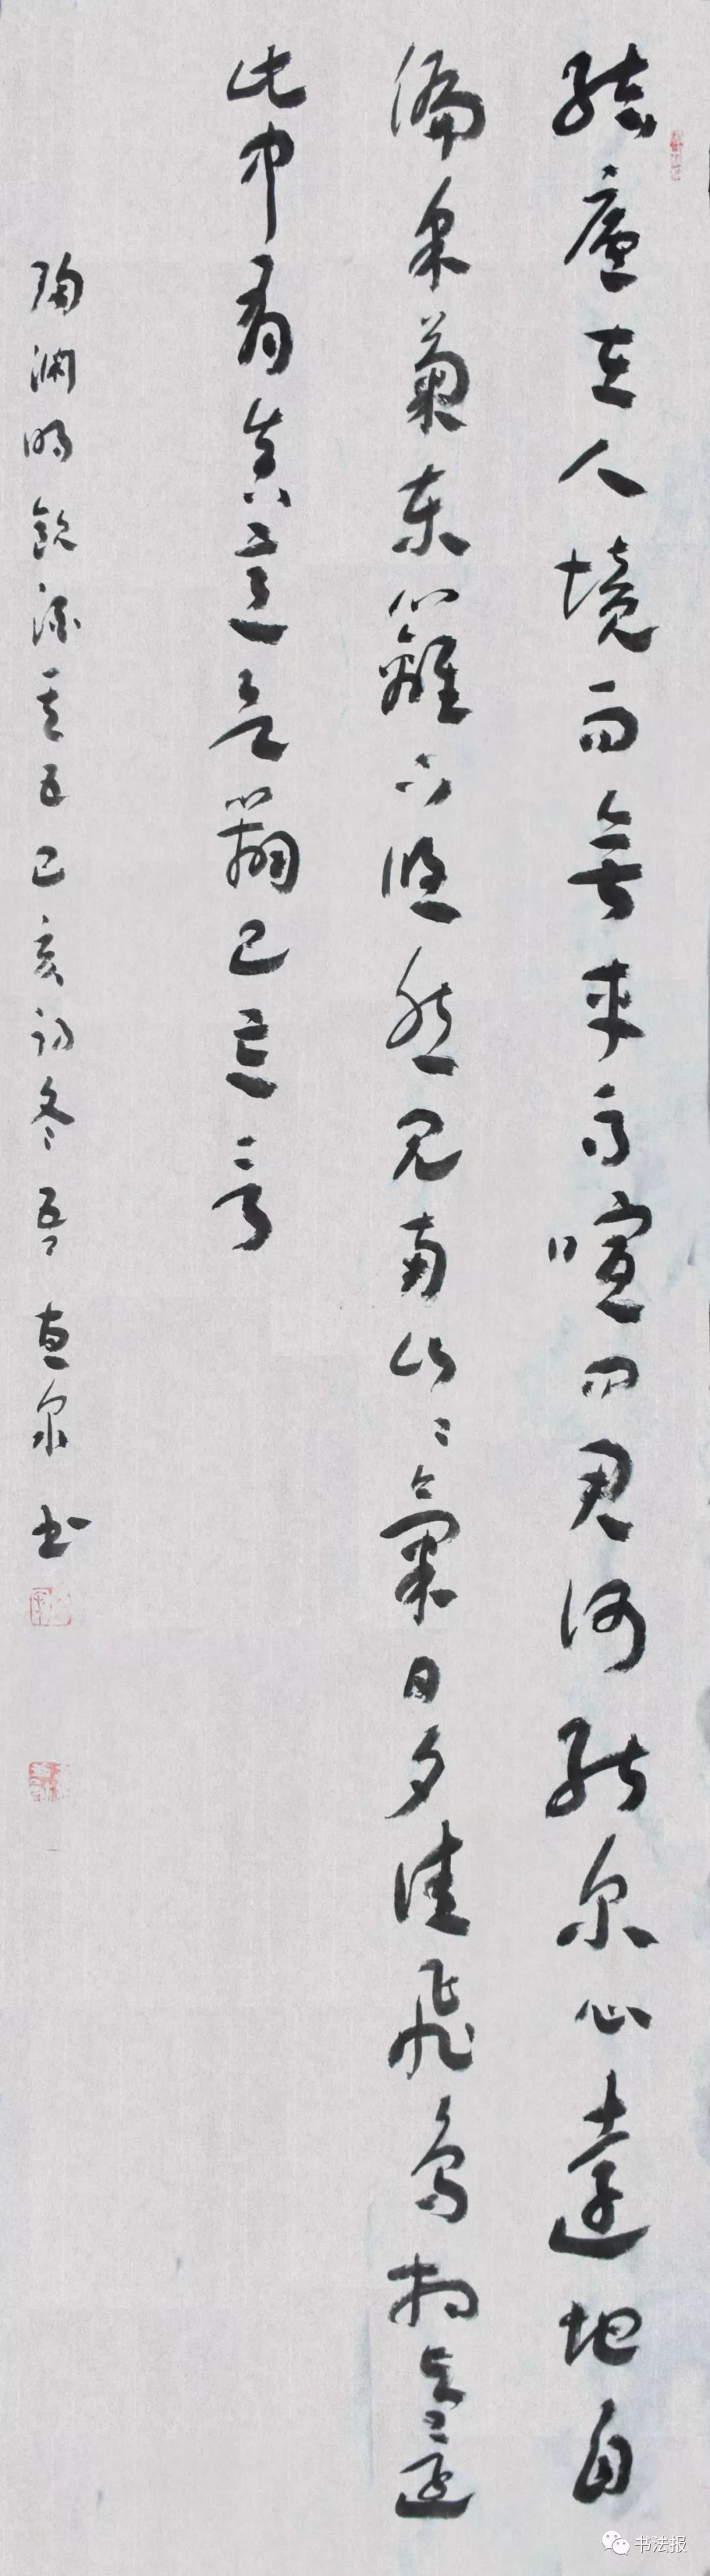 結廬在人境而無車馬喧問君何能尔心遠地自
偏采菊東籬下悠然見南山〻氣日夕佳飛鳥相與還
此中有真意欲辯已忘言
陶淵明飲酒其五己亥初冬吾泉书
书法报